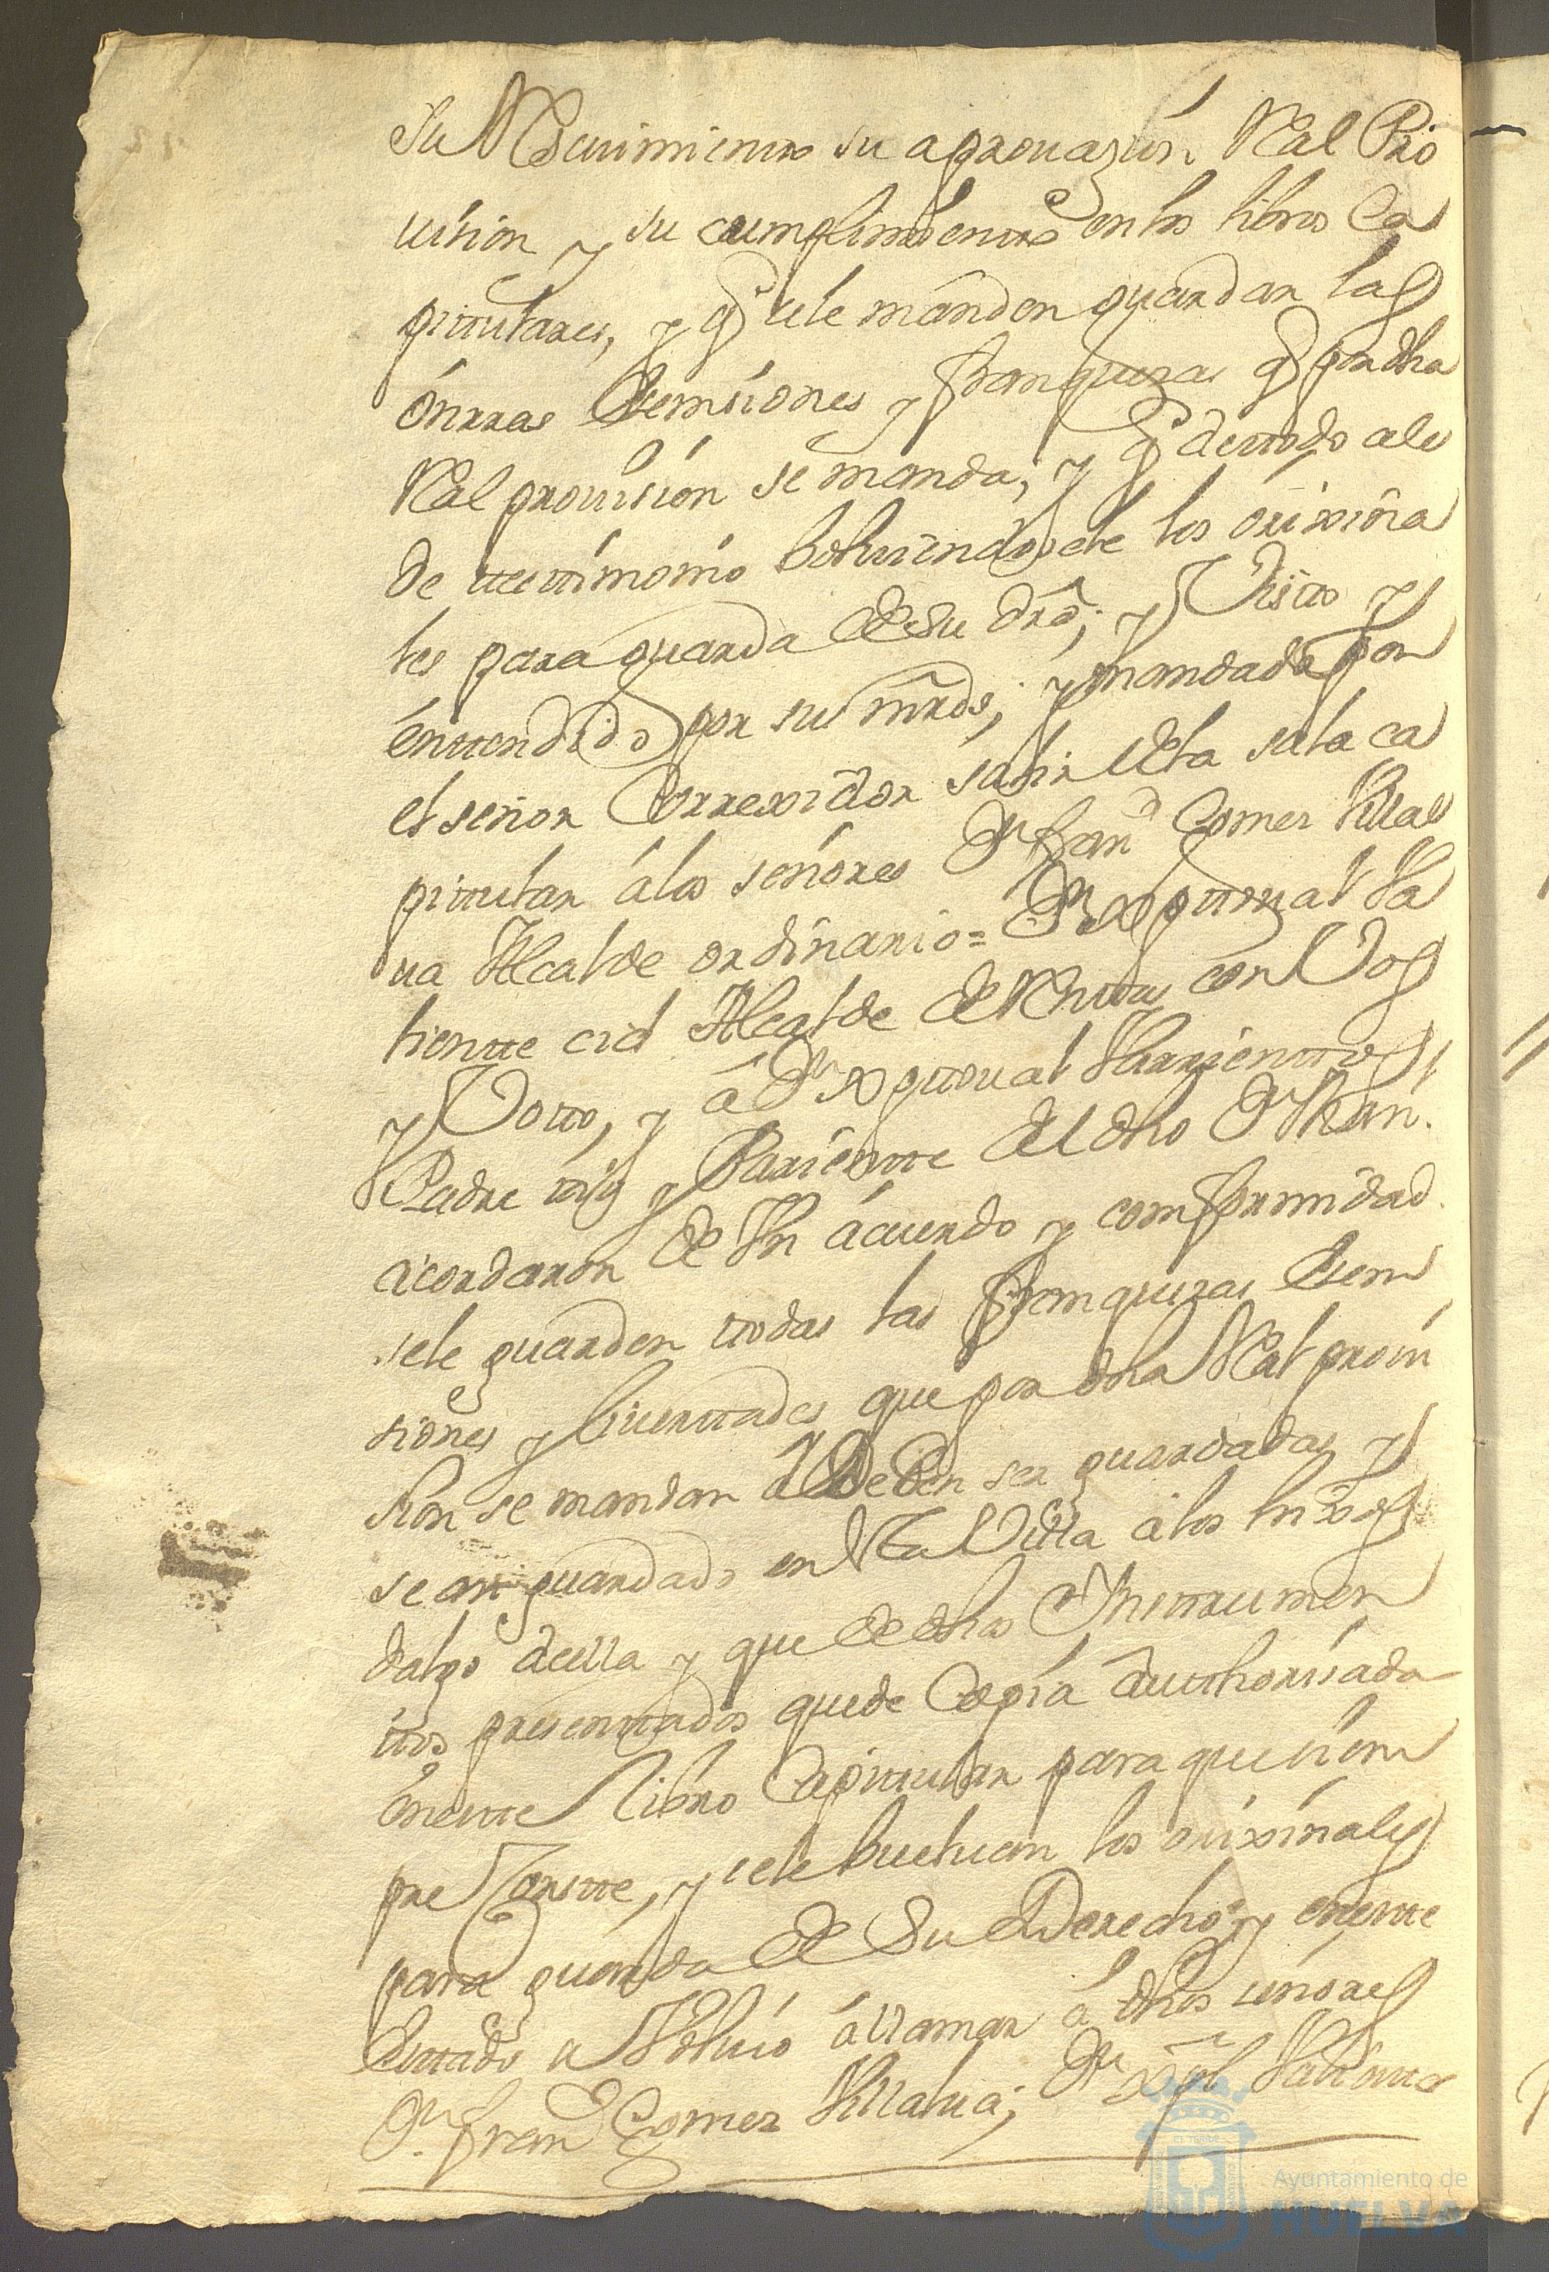 su Reseuimiento su aprouazión Real Pro
uision y su cumplimiento en los libros Ca
pittulares, y q se le manden guardar las
ónrras Esemsiones y franquezas q por dha
Real prouision se manda; y q de ttodo se le
de ttesttimonio bolviendosele los orixina
les para guarda de su dro; y Visto y
énttendido por sus mrds; y mandado por
el señor Correxidor salir de la sala ca
pittular á los señores Dn fran Gomez Villal
ua Alcalde ordinario= Dn Xpttoual Va
liente cid Alcalde de Renttas con Vos
y Votto, y á Dn Xpttoual Varrienttos
Padre y Pariente del dho Dn Juan.
acordaron de Vn ácuerdo y comformidad
sele guarden ttodas las franquezas Esem
siones y liuerttades que por dha Real proui
sion se mandan y Deben ser guardadas y
se an guardado en esta Villa á los hixos
dalgo de ella y que de dhos Ynsttrumen
ttos presenttados quede Copia autthorisada
én este Libro Capittular para que siem
pre Conste, y se le buelvan los orixinales
para guarda de Su Derecho; y en este
Esttado se Voluió á llamar á dhos señores
Dn fran Gomez Villalua; Dn Xpl Valiente
Ayuntamiento de
HUELVA